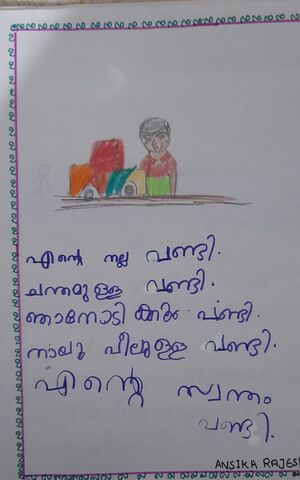 എന്റെ നല്ല വണ്ടി.
ചന്തമുള്ള വണ്ടി.
ഞാനോടിക്കും വണ്ടി.
നാലു വീലുള്ള വണ്ടി.
എന്റെ സ്വന്തം
വണ്ടി.
ANSIKA RAJESH